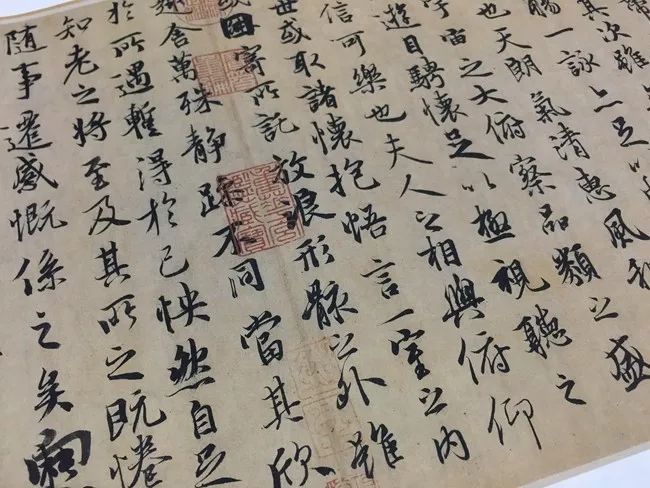 其次雖
觴一詠亦足以
也天朗氣清惠風和
宇宙之大俯察品類之盛
遊目騁懷足以極視聽之
信可樂也夫人之相與俯仰
世或取諸懷抱悟言一室之內
或因寄所託放浪形骸之外雖
趣舍萬殊靜躁不同當其欣
於所遇蹔得於己怏然自足
知老之將至及其所之既惓
隨事遷感慨係之矣向